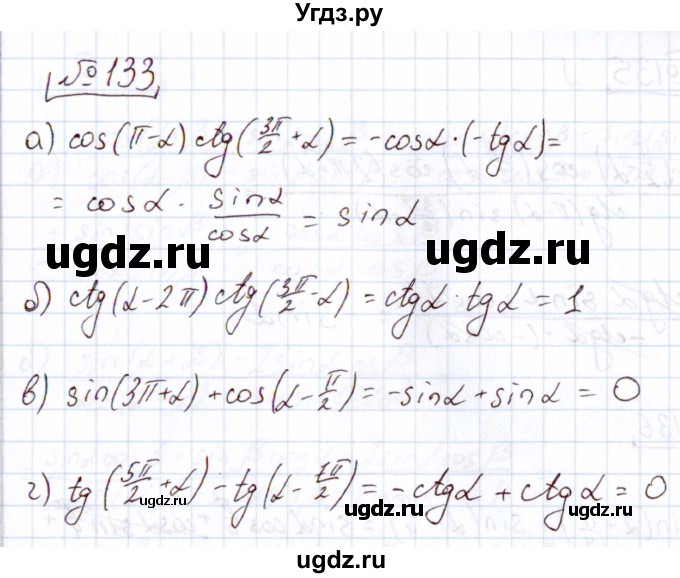 Угдз.ру
№ 133
а) cos(π-α) ctg(3π/2 +α) = -cosα·(-tgα)=
= cosα · sinα/cosα = sinα
ugdz.ru ugdz.ru
б) ctg(α-2π) ctg(3π/2 -α) = ctgα·tgα = 1
в) sin(3π+α)+cos(α-π/2)=-sinα+sinα = 0
г) tg(5π/2 +α) - tg(α- 7π/2)= -ctgα + ctgα = 0
ugdz.ru ugdz.ru
ugdz.ru